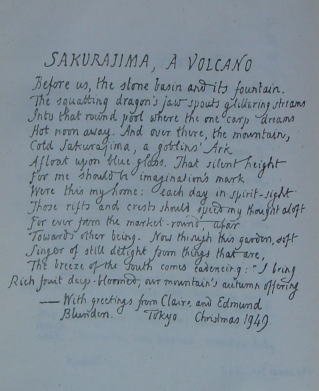 SAKURAJIMA, A VOLCANO
Before us, the stone basin and its fountain.
The squatting dragon's jaw spouts glittering streams
Into that round pool where the one carp dreams
Hot noon away. And over there, the mountain,
Cold Sakurajima, a goblins' Ark
Afloat upon blue glass. That silent height
For me should be imagination's mark
Were this my home: each day in spirit-sight
Those rifts and crests should speed my thought aloft
For ever from the market-round, afar
Towards other being. Now through this garden, soft
Singer of still delight from things that are,
The breeze of the South comes cadencing: "I bring
Rich fruit deep-bloomed, our mountain's autumn offering
— With greetings from Claire and Edmund
Blunden. Tokyo Christmas 1949.